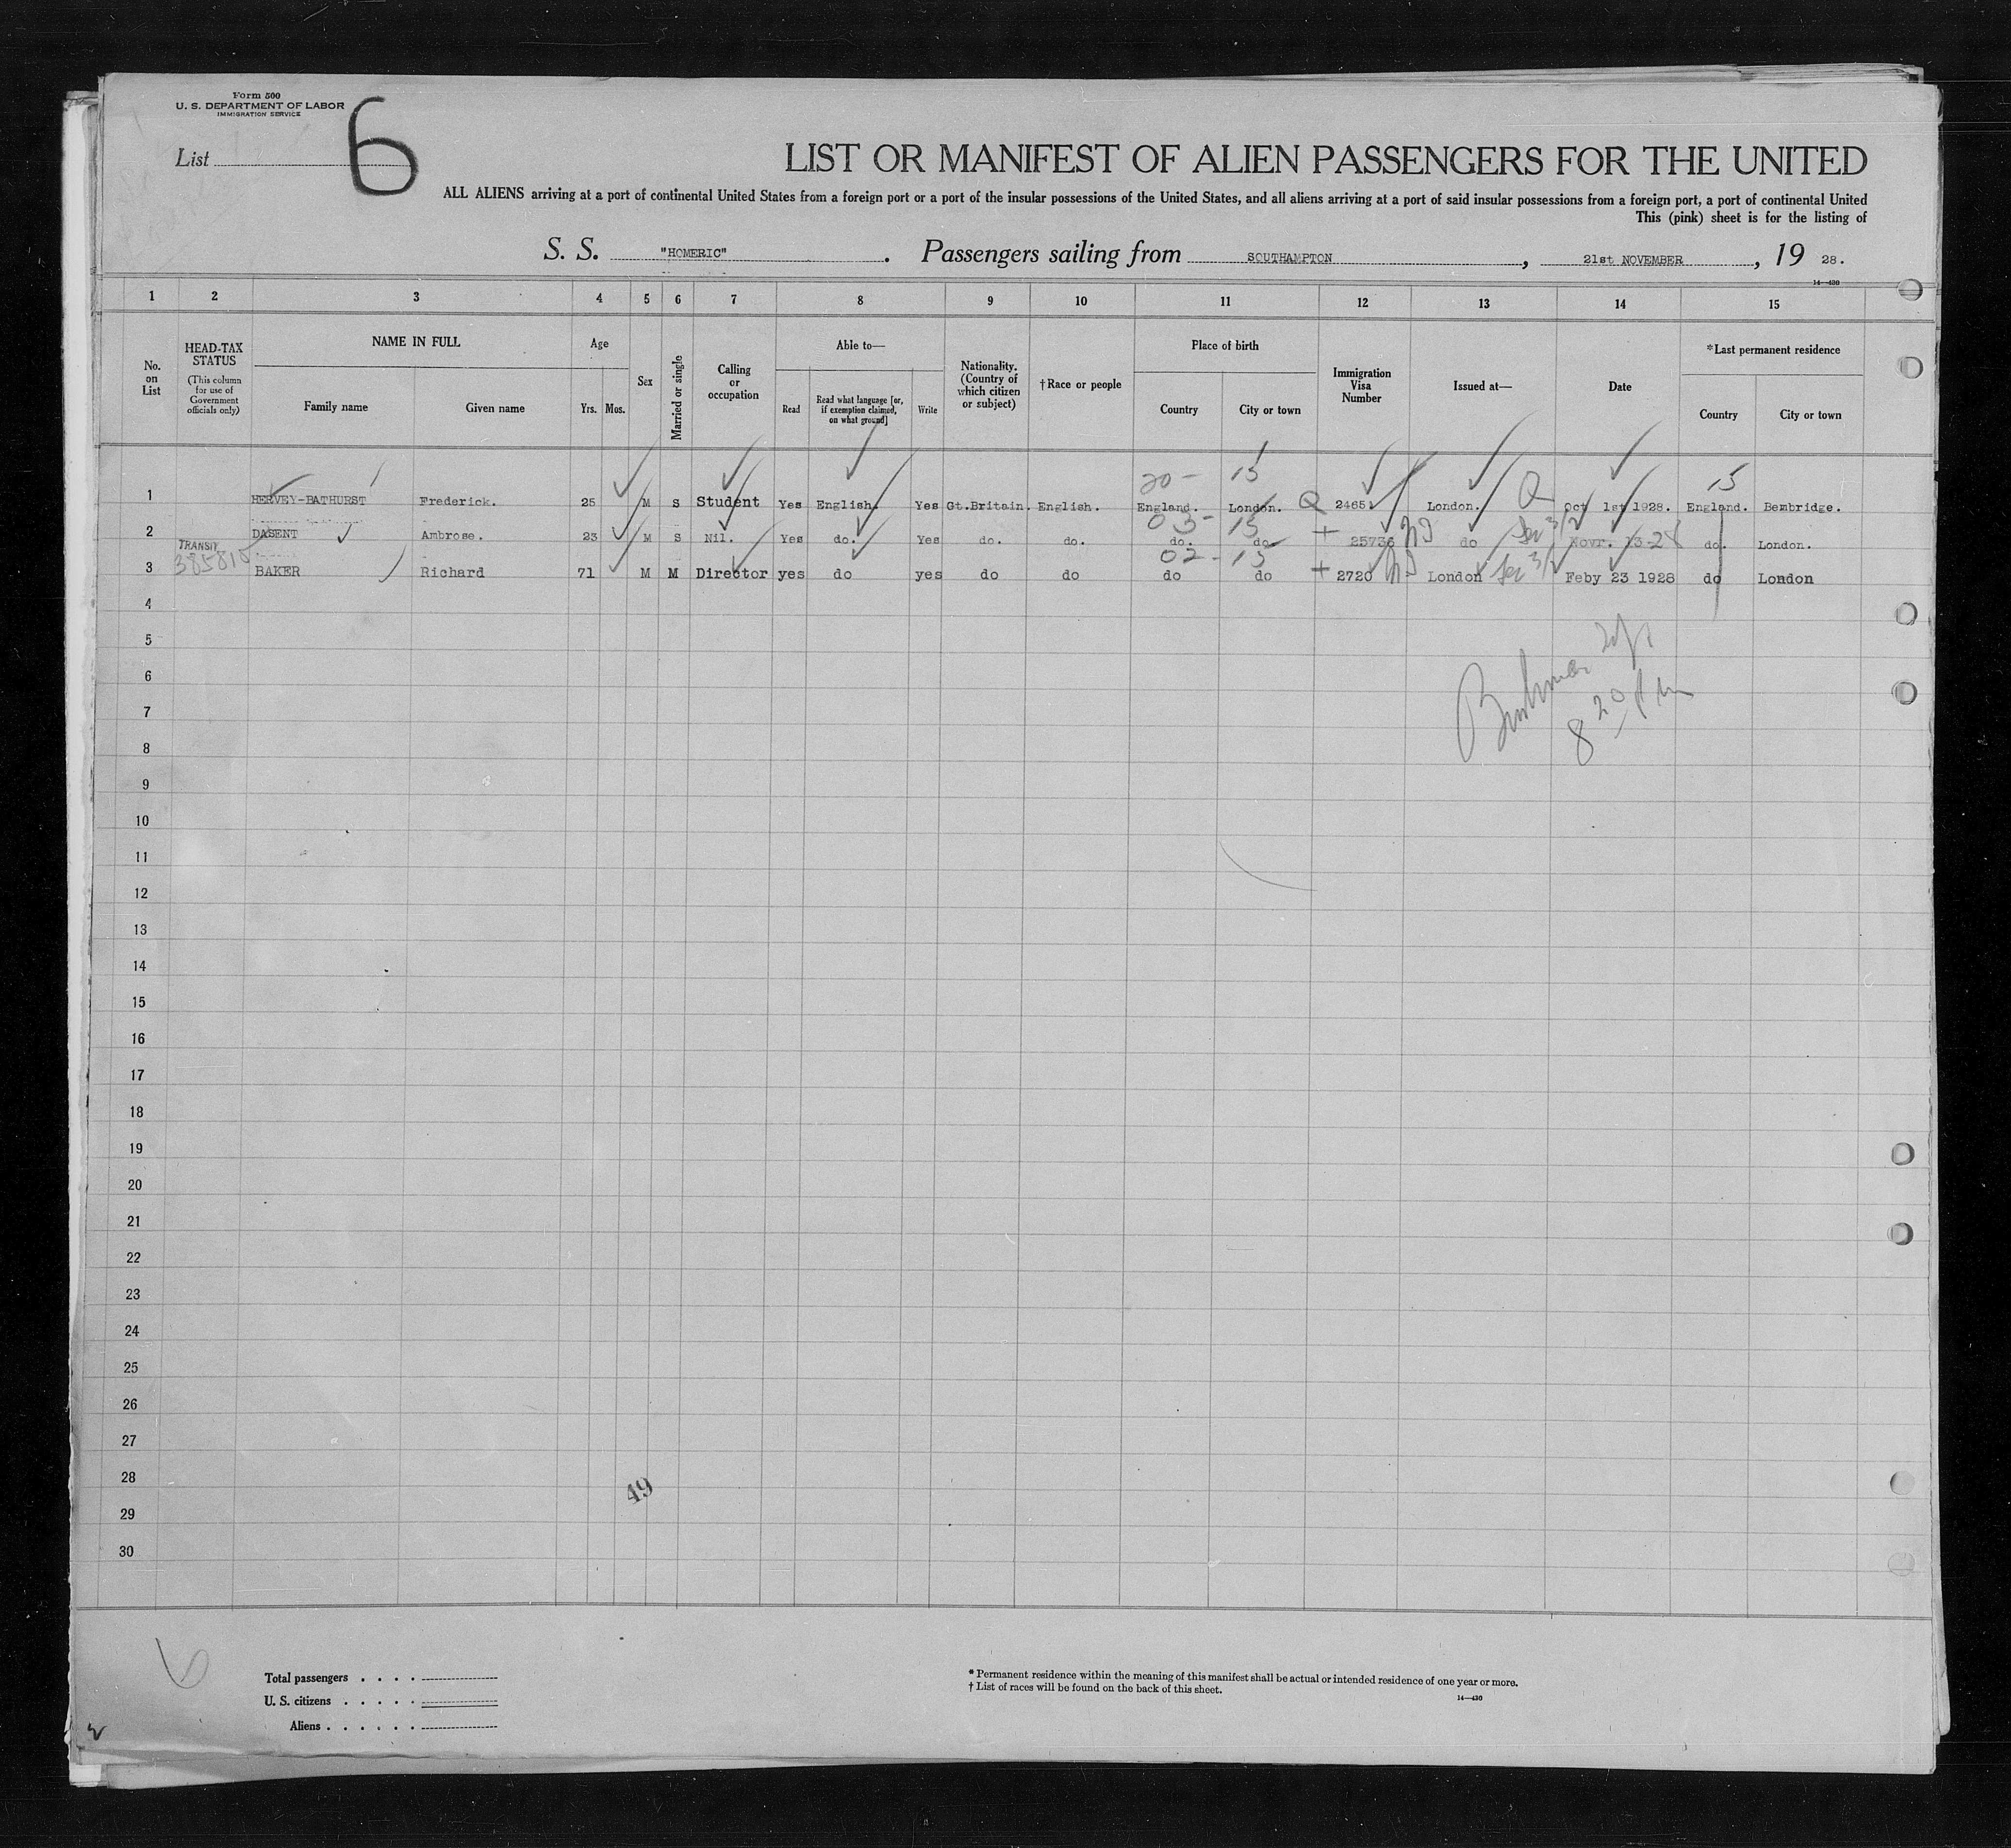 Form 500
U. S. DEPARTMENT OF LABOR
IMMIGRATION SERVICE
List 6
LIST OR MANIFEST OF ALIEN PASSENGERS FOR THE UNITED
ALL ALIENS arriving at a port of continental United States from a foreign port or a port of the insular possessions of the United States, and all aliens arriving at a port of said insular possessions from a foreign port, a port of continental United
This (pink) sheet is for the listing of
S. S. "HOMERIC". Passengers sailing from SOUTHAMPTON, 21st NOVEMBER, 19 28.
14—430
1 2 3 4 5 6 7 8 9 10 11 12 13 14 15
No. on List
HEAD-TAX STATUS (This column for use of Government officials only)
NAME IN FULL
Family name Given name
Age
Yrs. Mos.
Sex
Married or single
Calling or occupation
Able to—
Read Read what language [or, if exemption claimed, on what ground] Write
Nationality. (Country of which citizen or subject)
†Race or people
Place of birth
Country City or town
Immigration Visa Number
Issued at—
Date
*Last permanent residence
Country City or town
20- 15 15
1 HERVEY-BATHURST Frederick. 25 M S Student Yes English. Yes Gt.Britain. English. England. London. Q 2465 London. Q Oct 1st 1928. England. Bembridge.
03- 15
2 DASENT Ambrose. 23 M S Nil. Yes do. Yes do. do. do. do + 25736 do Sec 3/2 Novr. 13-28 do. London.
TRANSIT
385815
02-15
3 BAKER Richard 71 M M Director yes do yes do do do do + 2720 London Sec 3/2 Feby 23 1928 do London
4
5
6
7
8 20 pm
8
9
10
11
12
13
14
15
16
17
18
19
20
21
22
23
24
25
26
27
28
49
29
30
6
Total passengers . . . .
U. S. citizens . . . . .
Aliens . . . . . .
* Permanent residence within the meaning of this manifest shall be actual or intended residence of one year or more.
† List of races will be found on the back of this sheet.
14—430